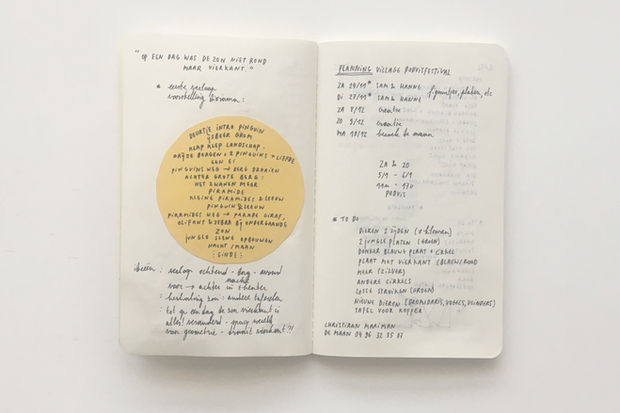 "OP EEN DAG WAS DE ZON NIET ROND
MAAR VIERKANT."
* eerste verloop
voorstelling brainen:
DEURTJE INTRO PINGUIN
IJSBEER GROM
KLAP KLEP LANDSCHAP -
WIJDE BERGEN + 2 PINGUINS = LIEFDE
EEN EI
PINGUINS WEG → BERG DRAAIEN
ACHTER GROTE BERG:
HET ZWANEN MEER
PIRAMIDE
KLEINE PIRAMIDES & LEEUW
PINGUIN & LEEUW
PIRAMIDES WEG → PARADE GIRAF,
OLIFANT & ZEBRA BIJ ONDERGAANDE
ZON
JUNGLE SCENE OPBOUWEN
NACHT/MAAN
:EINDE:
ideeën: verloop ochtend - dag - avond
nacht
voor → achter in theater
: herhaling zon: andere taferelen
: tot op een dag de zon vierkant is
alles verandert
van geometrie - bromt vierkant?!
PLANNING VILLAGE PODUISFESTIVAL
ZA 24/11 * SAM & HANNE
DI 27/11 * SAM & HANNE
ZA 8/12 creatie
ZO 9/12 creatie
MA 10/12
ZA & ZO
5/1 - 6/1
11u - 17u
* TO DO
DIEREN 2 ZIJDEN
2 JUNGLE PLATEN (GROEN)
DONKER BLAUWE PLAAT + CIRKEL
PLAAT MET VIERKANT (BLAUW/ROOD)
MEER (ZILVER)
ANDERE CIRKELS
LOSSE STRUIKEN (GROEN)
NIEUWE DIEREN (DROMEDARIS, VOGELS, VLINDERS)
TAFEL VOOR KOFFER
CHRISTIAAN MARIMAN
DE MAAN 0496 32 35 87